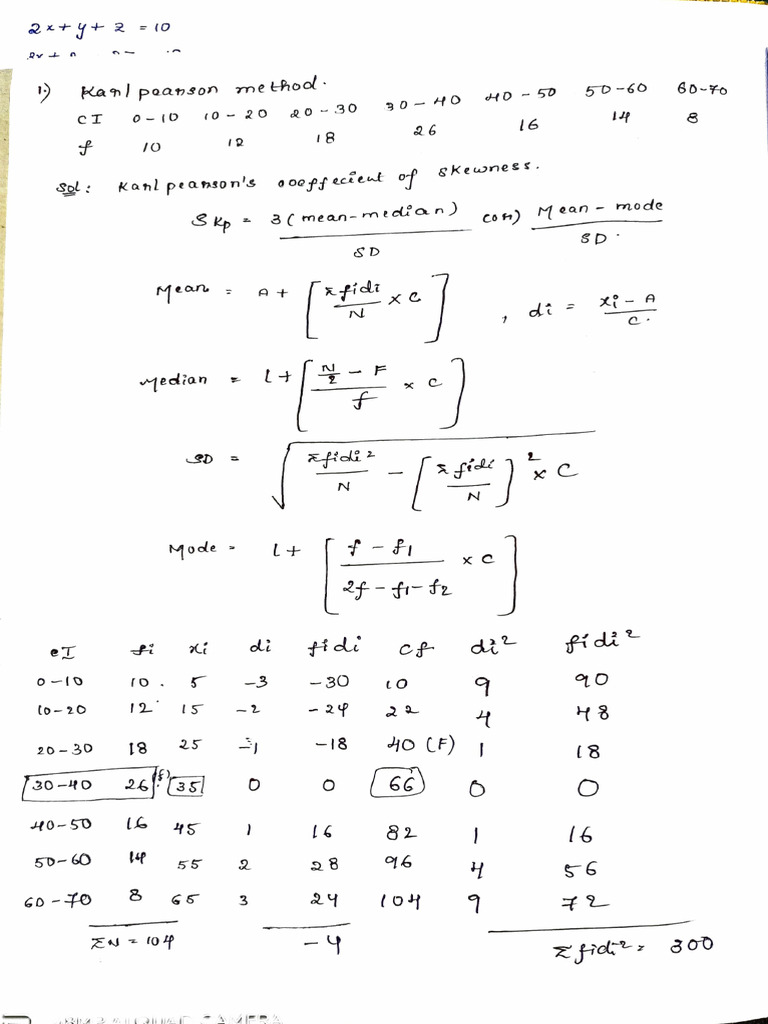 2x + y + z = 10
1.) Karl pearson method.
CI 0-10 10-20 20-30 30-40 40-50 50-60 60-70
f 10 12 18 26 16 14 8
Sol: Karl pearson's coeffecient of skewness.
SKp = 3(mean-median) / SD (or) Mean - mode / SD.
Mean = A + [Σfidi / N × C] , di = xi - A / C.
Median = l + [N/2 - F / f × C]
SD = √ Σfidi² / N - [Σfidi / N]² × C
Mode = l + [f - f1 / 2f - f1 - f2 × C]
CI fi xi di fidi cf di² fidi²
0-10 10. 5 -3 -30 10 9 90
10-20 12 15 -2 -24 22 4 48
20-30 18 25 -1 -18 40 (F) 1 18
30-40 26 (f) 35 0 0 66 0 0
40-50 16 45 1 16 82 1 16
50-60 14 55 2 28 96 4 56
60-70 8 65 3 24 104 9 72
ΣN = 104 -4 Σfidi² = 300